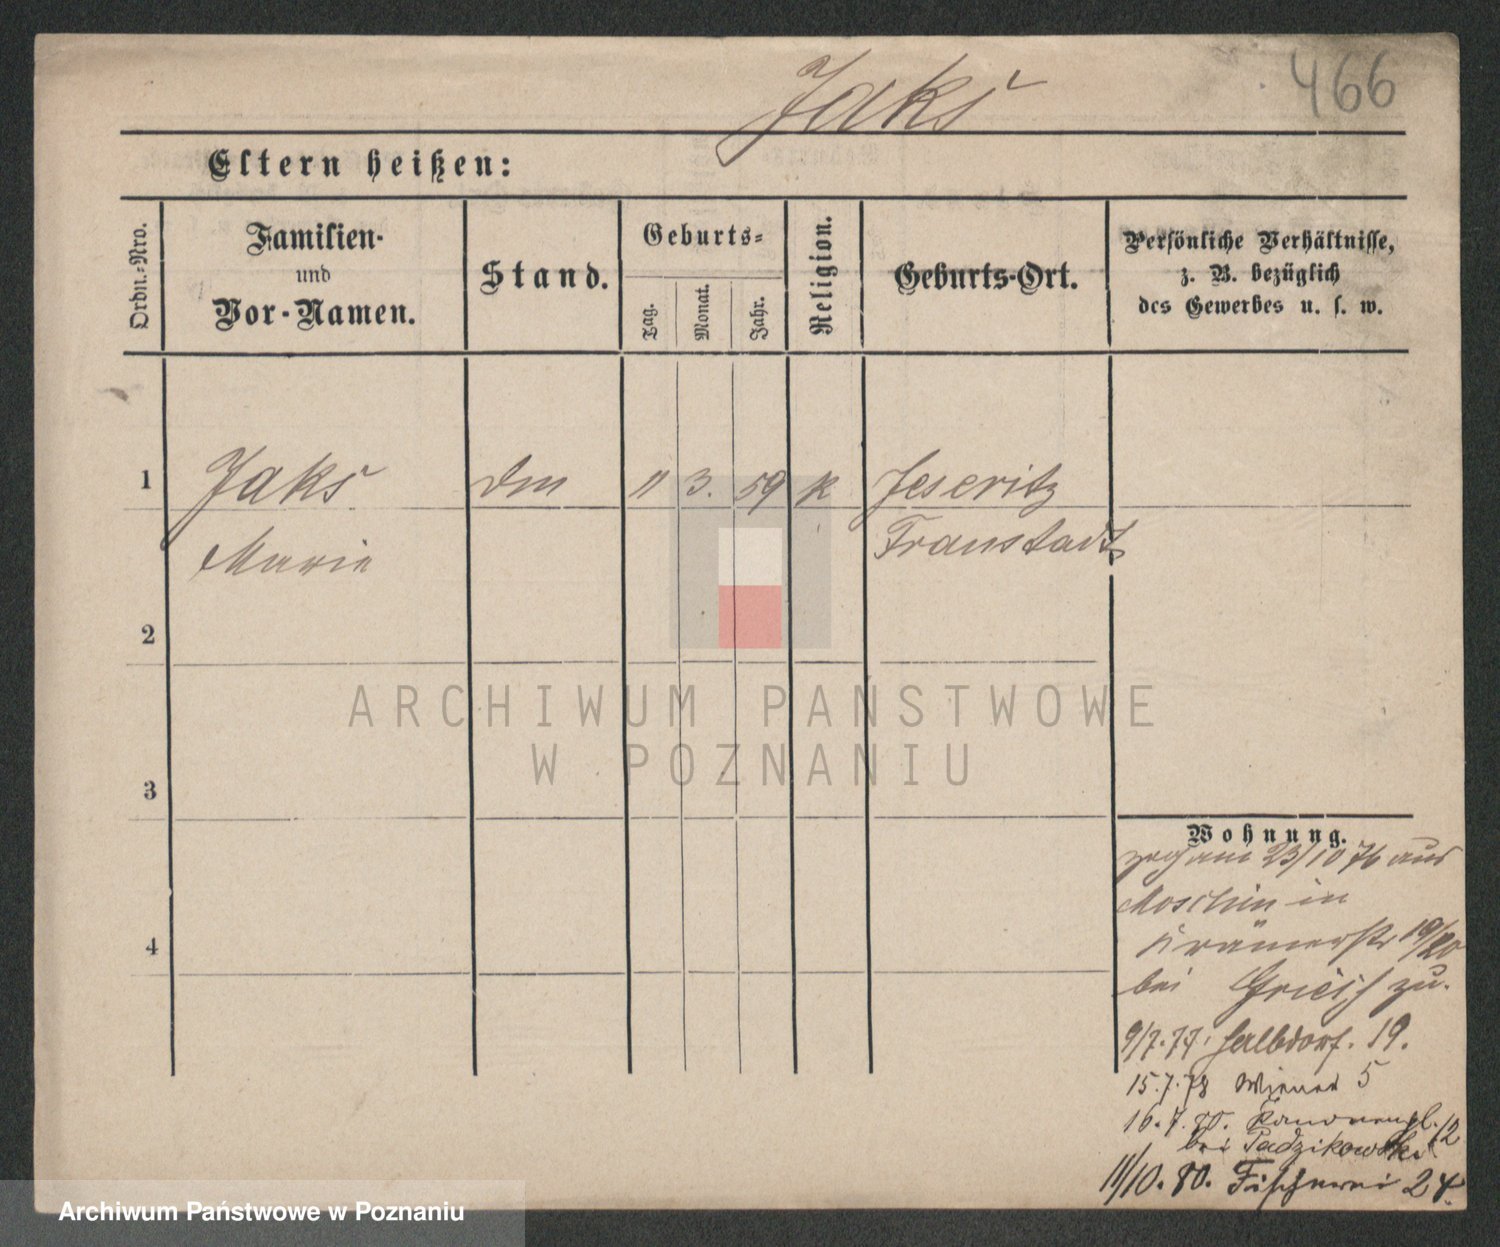 466
Jaks
Eltern heißen:
Ordn.=Nro.
Familien-
und
Vor-Namen.
Stand.
Geburts=
Tag.
Monat.
Jahr.
Religion.
Geburts-Ort.
Persönliche Verhältnisse,
z. B. bezüglich
des Gewerbes u. s. w.
1 Jaks 11 3. 59 k Jeseritz
Marie Fraustadt
2
3
4
Wohnung.
am 23/10 76 aus
Moschin in
Krämerstr 19/20
bei zu.
9/7.77. Halbdorf. 19.
15.7.78 Wiener 5
16.7.80. Kanonenpl. 12
bei Padzikowski
11/10.80. Fischerei 24.
ARCHIWUM PAŃSTWOWE
W POZNANIU
Archiwum Państwowe w Poznaniu